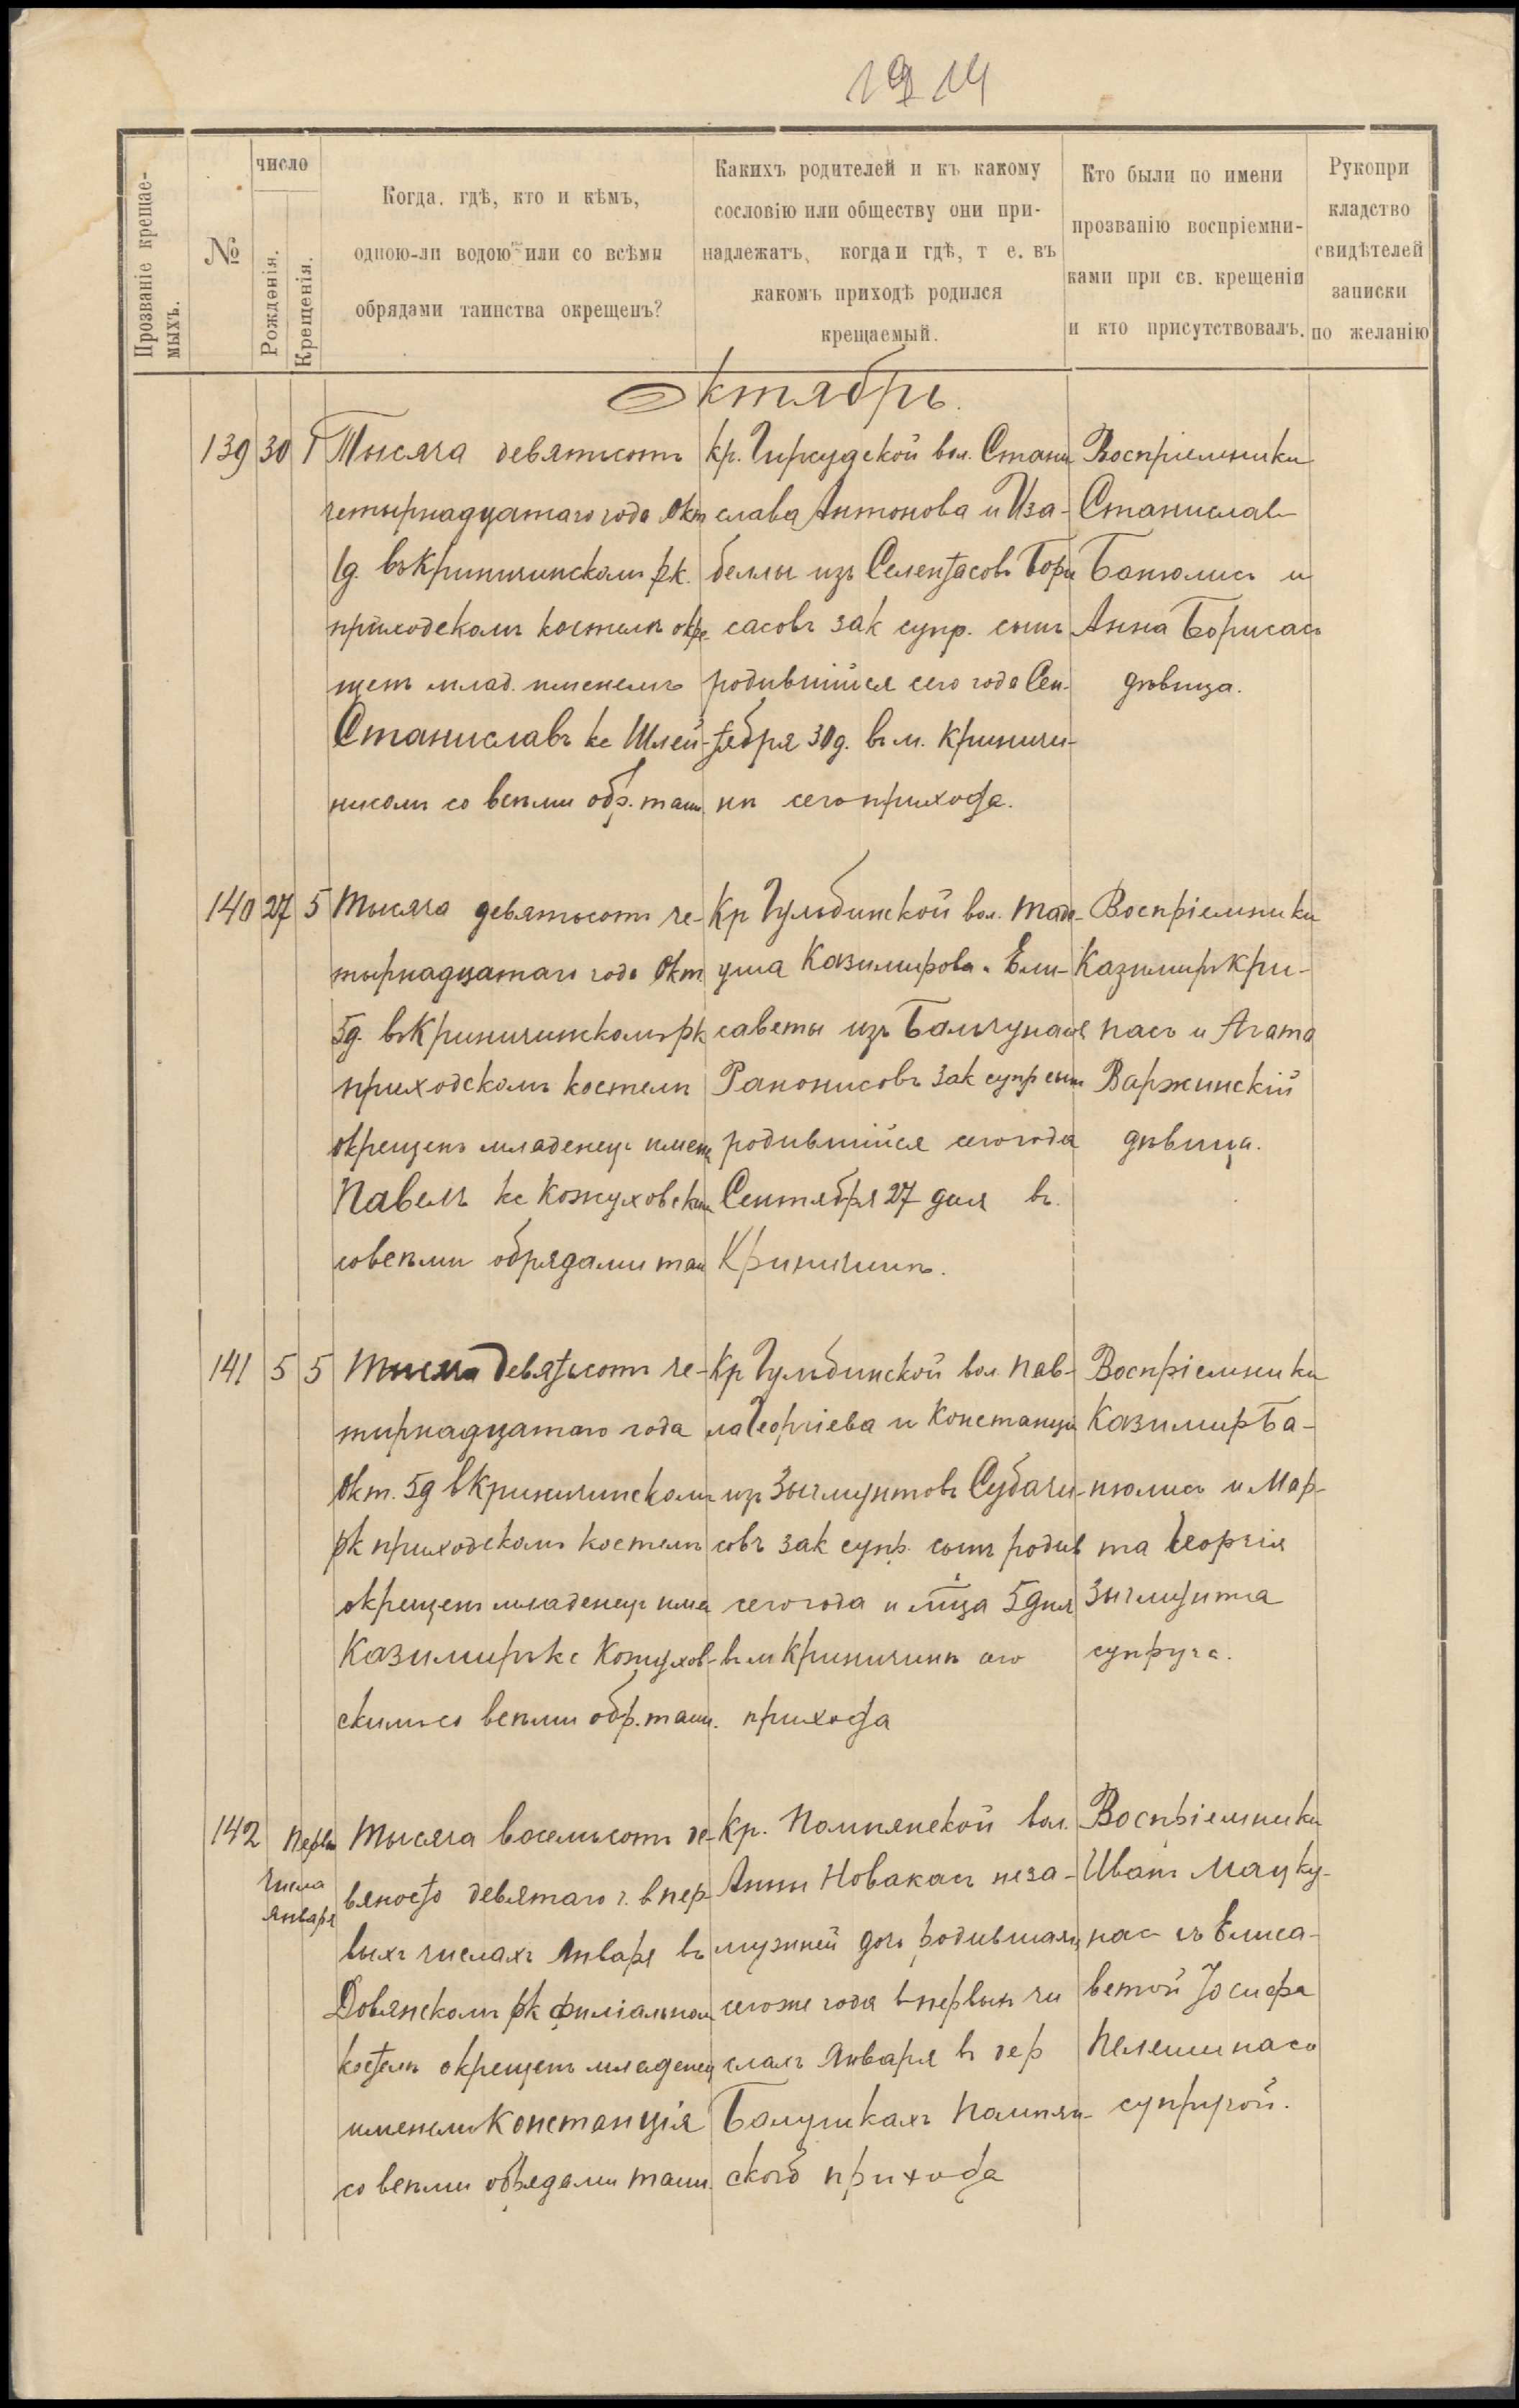 1914
Прозваніе крещае-
мыхъ.
№
число
Рожденія.
Крещенія.
Когда, гдѣ, кто и кѣмъ,
одною-ли водою или со всѣми
обрядами таинства окрещенъ?
Какихъ родителей и къ какому
сословію или обществу они при-
надлежатъ, когда и гдѣ, т е. въ
какомъ приходѣ родился
крещаемый.
Кто были по имени
прозванію воспріемни-
ками при св. крещеніи
и кто присутствовалъ.
Рукопри
кладство
свидѣтелей
записки
по желанію
Октябрь.
139 30 1
Тысяча девятьсотъ
четырнадцатаго года Окт
1д. въ Криничинскомъ рк.
приходскомъ костелѣ окре-
щенъ млад. именемъ
Станиславъ кс Шлей-
нисомъ со всѣми обр. таин.
кр. Гирсудской вол. Стани
слава Антонова и Иза-
беллы изъ Селентасовъ Бори
сасовъ зак супр. сынъ
родившійся сего года Сен-
тября 30д. въ м. Криничи-
нѣ сего прихода.
Воспріемники
Станиславъ
Банюлисъ и
Анна Борисасъ
дѣвица.
140 27 5
Тысяча девятьсотъ че-
тырнадцатаго года Окт
5д. въ Криничинскомъ рк
приходскомъ костелѣ
окрещенъ младенецъ имен
Павелъ кс Кожуховским
со всѣми обрядами таи
Кр Гульбинской вол. Таде-
уша Казимирова и Ели-
саветы изъ Бальчунасъ
Рапонисовъ зак супр сынъ
родившійся сего года
Сентября 27 дня въ
Криничинѣ.
Воспріемники
Казимиръ Кри-
пасъ и Агата
Варжинскій
дѣвица.
141 5 5
Тысяча девятьсотъ че-
тырнадцатаго года
Окт. 5д въ Криничинскомъ
рк приходскомъ костелѣ
окрещенъ младенецъ име
Казимиръ кс Кожухов-
скимъ со всѣми обр. таин.
Кр Гульбинской вол. Пав-
ла Георгіева и Констанціи
изъ Зыгмунтовъ Субачи-
совъ зак супр. сынъ родив
сего года и м-ца 5 дня
въ м Криничинѣ сего
прихода
Воспріемники
Казимиръ Ба-
нюлисъ и Мар-
та Георгія
Зыгмунта
супруга.
142 Первы
числа
Января
Тысяча восемьсотъ де-
вяносто девятаго г. въ пер-
выхъ числахъ Января въ
Довянскомъ рк филіальном
костелѣ окрещенъ младенец
именемъ Констанція
со всѣми обрядами таин.
Кр. Помпянской вол.
Анны Новакасъ неза-
мужней дочь родившаяся
сего же года въ первых чи
слахъ Января въ дер
Балушкахъ Помпян-
ского прихода
Воспріемники
Иванъ Мацку-
нас съ Елиса-
ветой Іосифа
Пелешинаса
супругой.